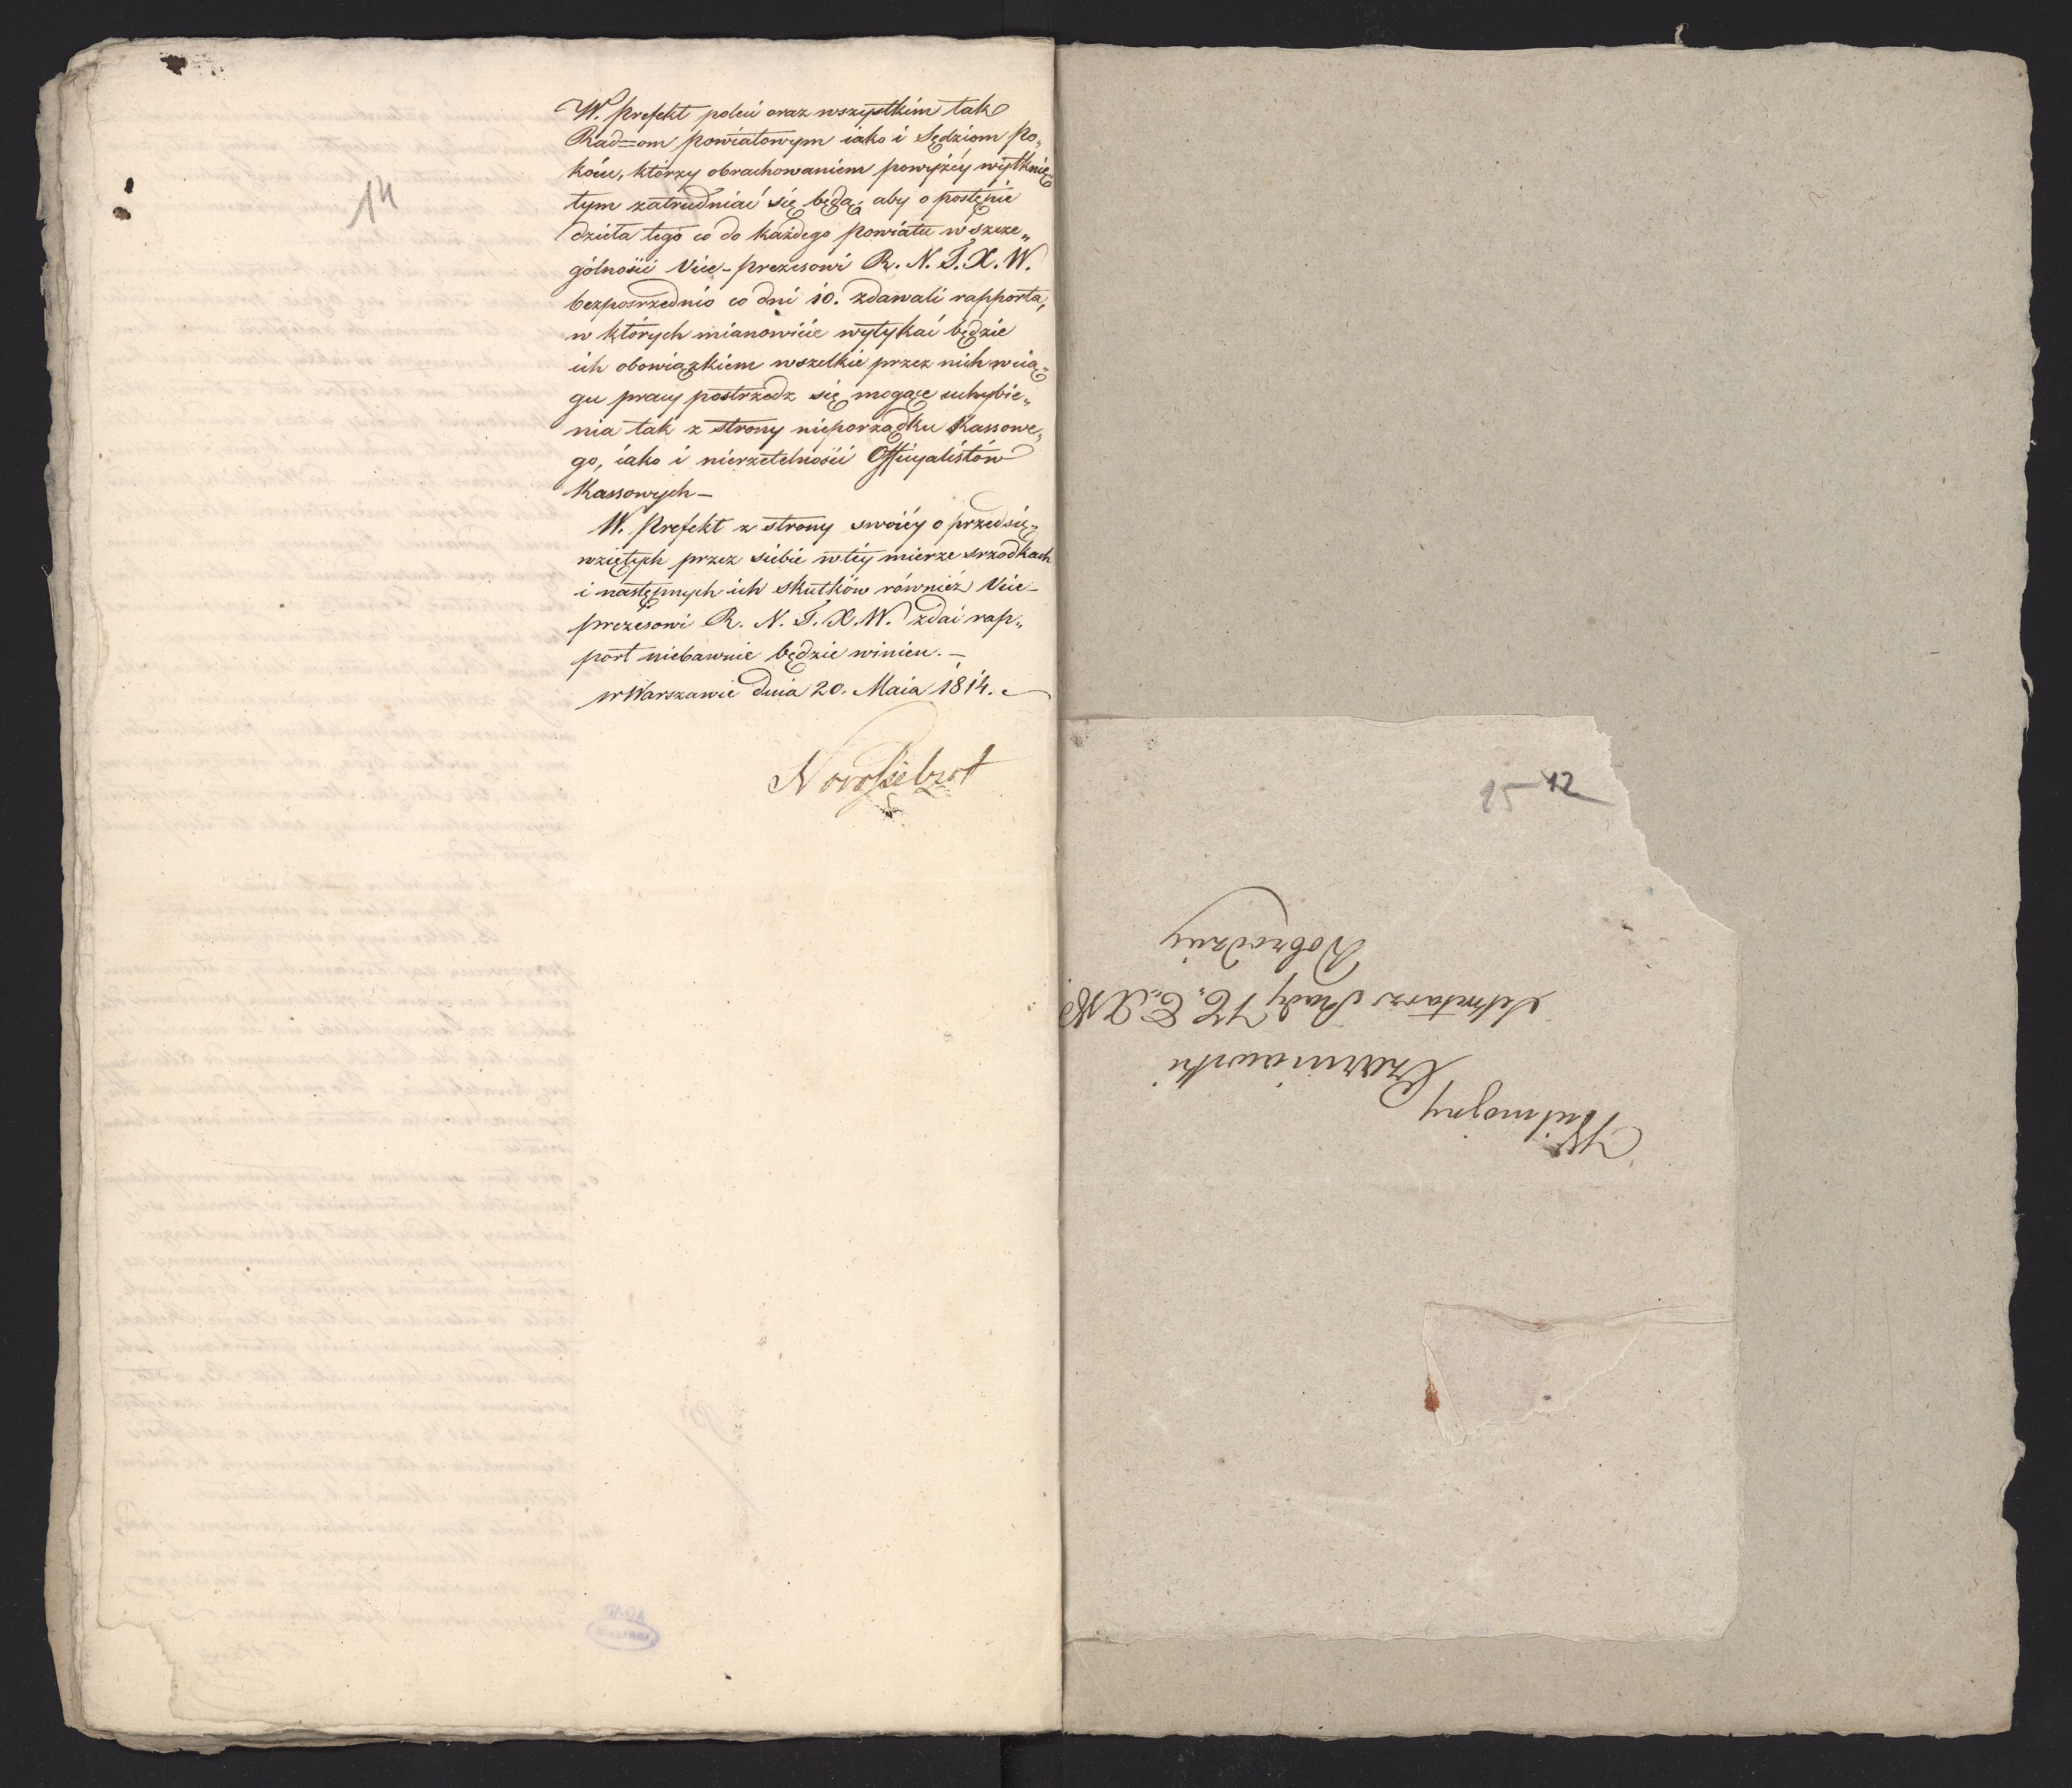 14
W. Prefekt poleci oraz wszystkim tak
Rad=om powiatowym iako i Sędziom Po„
koiu, którzy obrachowaniem powyżéy wytknię„
tym zatrudniać się będą, aby o postępie
dzieła tego co do każdego powiatu w szcze„
gólności Vice-prezesowi R. N. T. X. W.
bezposrzednio co dni 10. zdawali rapporta,
w których mianowicie wytykać będzie
ich obowiązkiem wszelkie przez nich w cią„
gu pracy postrzedz się mogące uchybie„
nia tak z strony nieporządku Kassowe„
go, iako i nierzetelności Officyalistów
Kassowych —
W. Prefekt z strony swoiéy o przedsię„
wziętych przez siebie w téy mierze srzodkach
i następnych ich skutków również Vice-
prezesowi R. N. T. X. W. zdać rap„
port niebawnie będzie winien. —
w Warszawie dnia 20. Maia 1814.
Novossilzoff
15 12
Wielmożny
Czarnawski
Sekretarz Rady
Dobrodziey